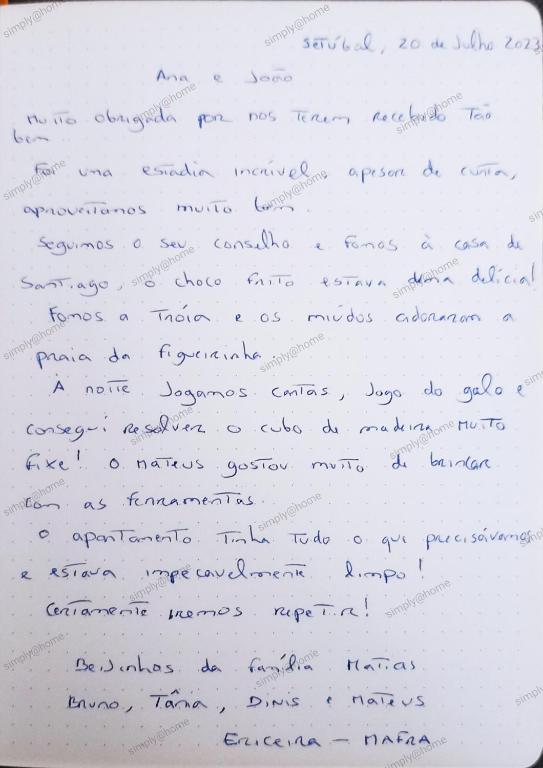 Setúbal, 20 de Julho 2023
Ana e João
Muito obrigada por nos terem recebido tão
bem.
Foi uma estadia incrível, apesar de curta,
aproveitamos muito bem.
Seguimos o seu conselho e fomos à casa de
Santiago, o choco frito estava uma delícia!
Fomos a Tróia e os miúdos adoraram a
praia da figueirinha.
À noite jogamos cartas, jogo do galo e
consegui resolver o cubo de madeira. Muito
fixe! O Mateus gostou muito de brincar
com as ferramentas.
O apartamento tinha tudo o que precisávamos
e estava impecavelmente limpo!
Certamente iremos repetir!
Beijinhos da família Matias
Bruno, Tânia, Dinis e Mateus
Ericeira - MAFRA
simply@home